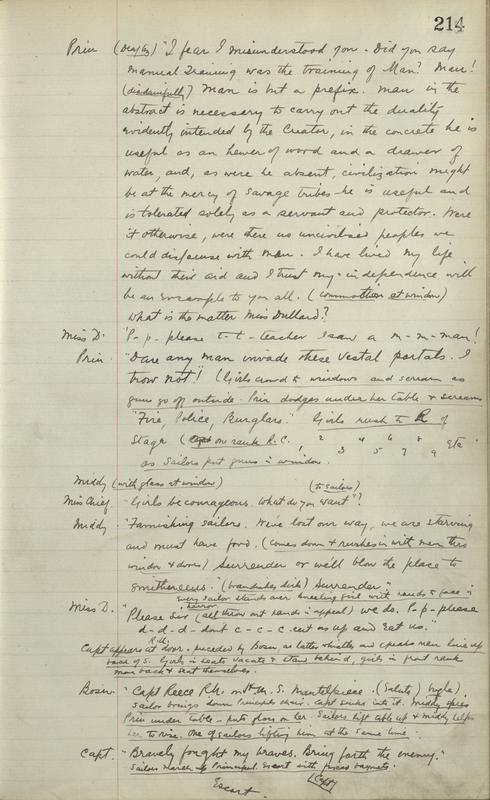 214
Prin (Deafly) "I fear I misunderstood you. Did you say
manual Training was the training of Man? Man!
(disdainfully) Man is but a prefix. Man in the
abstract is necessary to carry out the duality
evidently intended by the Creator, in the concrete he is
useful as an hewer of wood and a drawer of
water, and, as were he absent, civilization might
be at the mercy of savage tribes - he is useful and
is tolerated solely as a servant and protector. Were
it otherwise, were there no uncivilised peoples we
could dispense with man. I have lived my life
without their aid and I trust my independence will
be an example to you all. (commotion at window)
What is the matter Miss Dullard?
Miss D. "P-p-please t-t-teacher I saw a m-m-man!
Prin. "Dare any man invade these Vestal portals. I
trow not"! (Girls crowd to windows and scream as
guns go off outside. Prin dodges under her table & screams
"Fire, Police, Burglars." Girls rush to R of
Stage (one rank R.C. 1 2 3 4 5 6 7 8 9 etc
as sailors put guns in window.
Middy (with glass at window)
Miss Chief. - Girls be courageous. What do you want"? (to sailors)
Middy. "Famishing sailors. We've lost our way, we are starving
and must have food. (comes down & rushes in with men thro
window & doors) Surrender or we'll blow the place to
smithereens. (brandishes dirk) Surrender"
every sailor stands over kneeling girl with hands to face in horror
Miss D. "Please Sir (all throw out hands in appeal) we do. P-p-please
d-d-d-dont c-c-c-cut us up and eat us."
Capt appears at R.U. door. preceded by Bosun, as latter whistles and speaks men line up
back of S. Girls in seats vacate & stand behind, girls in front rank
move back & seat themselves.
Bosun. "Capt Reece R.N. of H.M.S. Mantelpiece. (Salute) bugle).
Sailor brings down Principals chair. Capt sinks into it. Middy spies
Prin under table - puts glass on her. Sailors lift table up & middy helps
her to rise. One of sailors lifting him at the same time.
Capt. "Bravely fought my braves. Bring forth the enemy."
Sailors March to Principal. Escort with fixed bayonets.
Escort. (Capt)